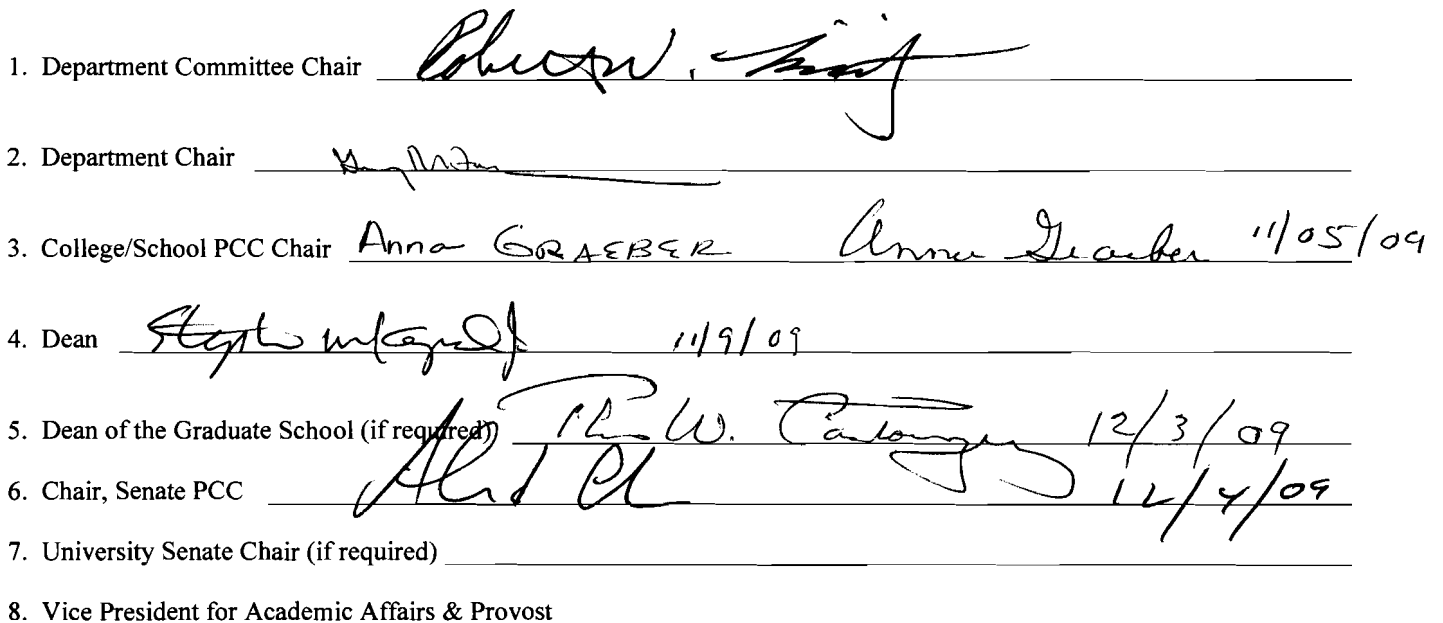 1. Department Committee Chair Robert W.
2. Department Chair
3. College/School PCC Chair Anna GRAEBER Anna Graeber 11/05/09
4. Dean 11/9/09
5. Dean of the Graduate School (if required) W. 12/3/09
6. Chair, Senate PCC 12/4/09
7. University Senate Chair (if required)
8. Vice President for Academic Affairs & Provost